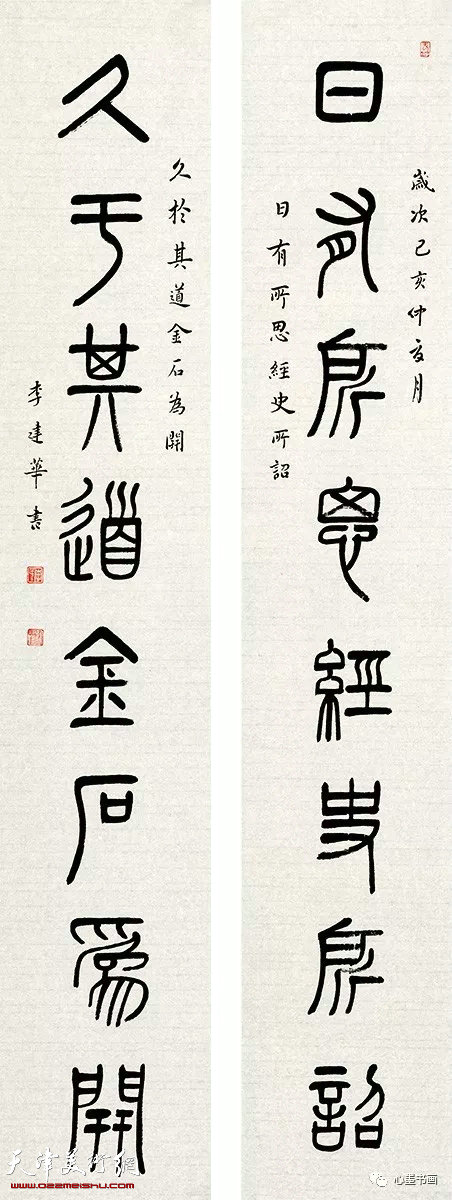 歲次己亥仲夏月
日有所思經史所詔
日有所思經史所詔
久於其道金石為開
久于其道金石為開
李建華書
天津美術網
www.022meishu.com
心星书画